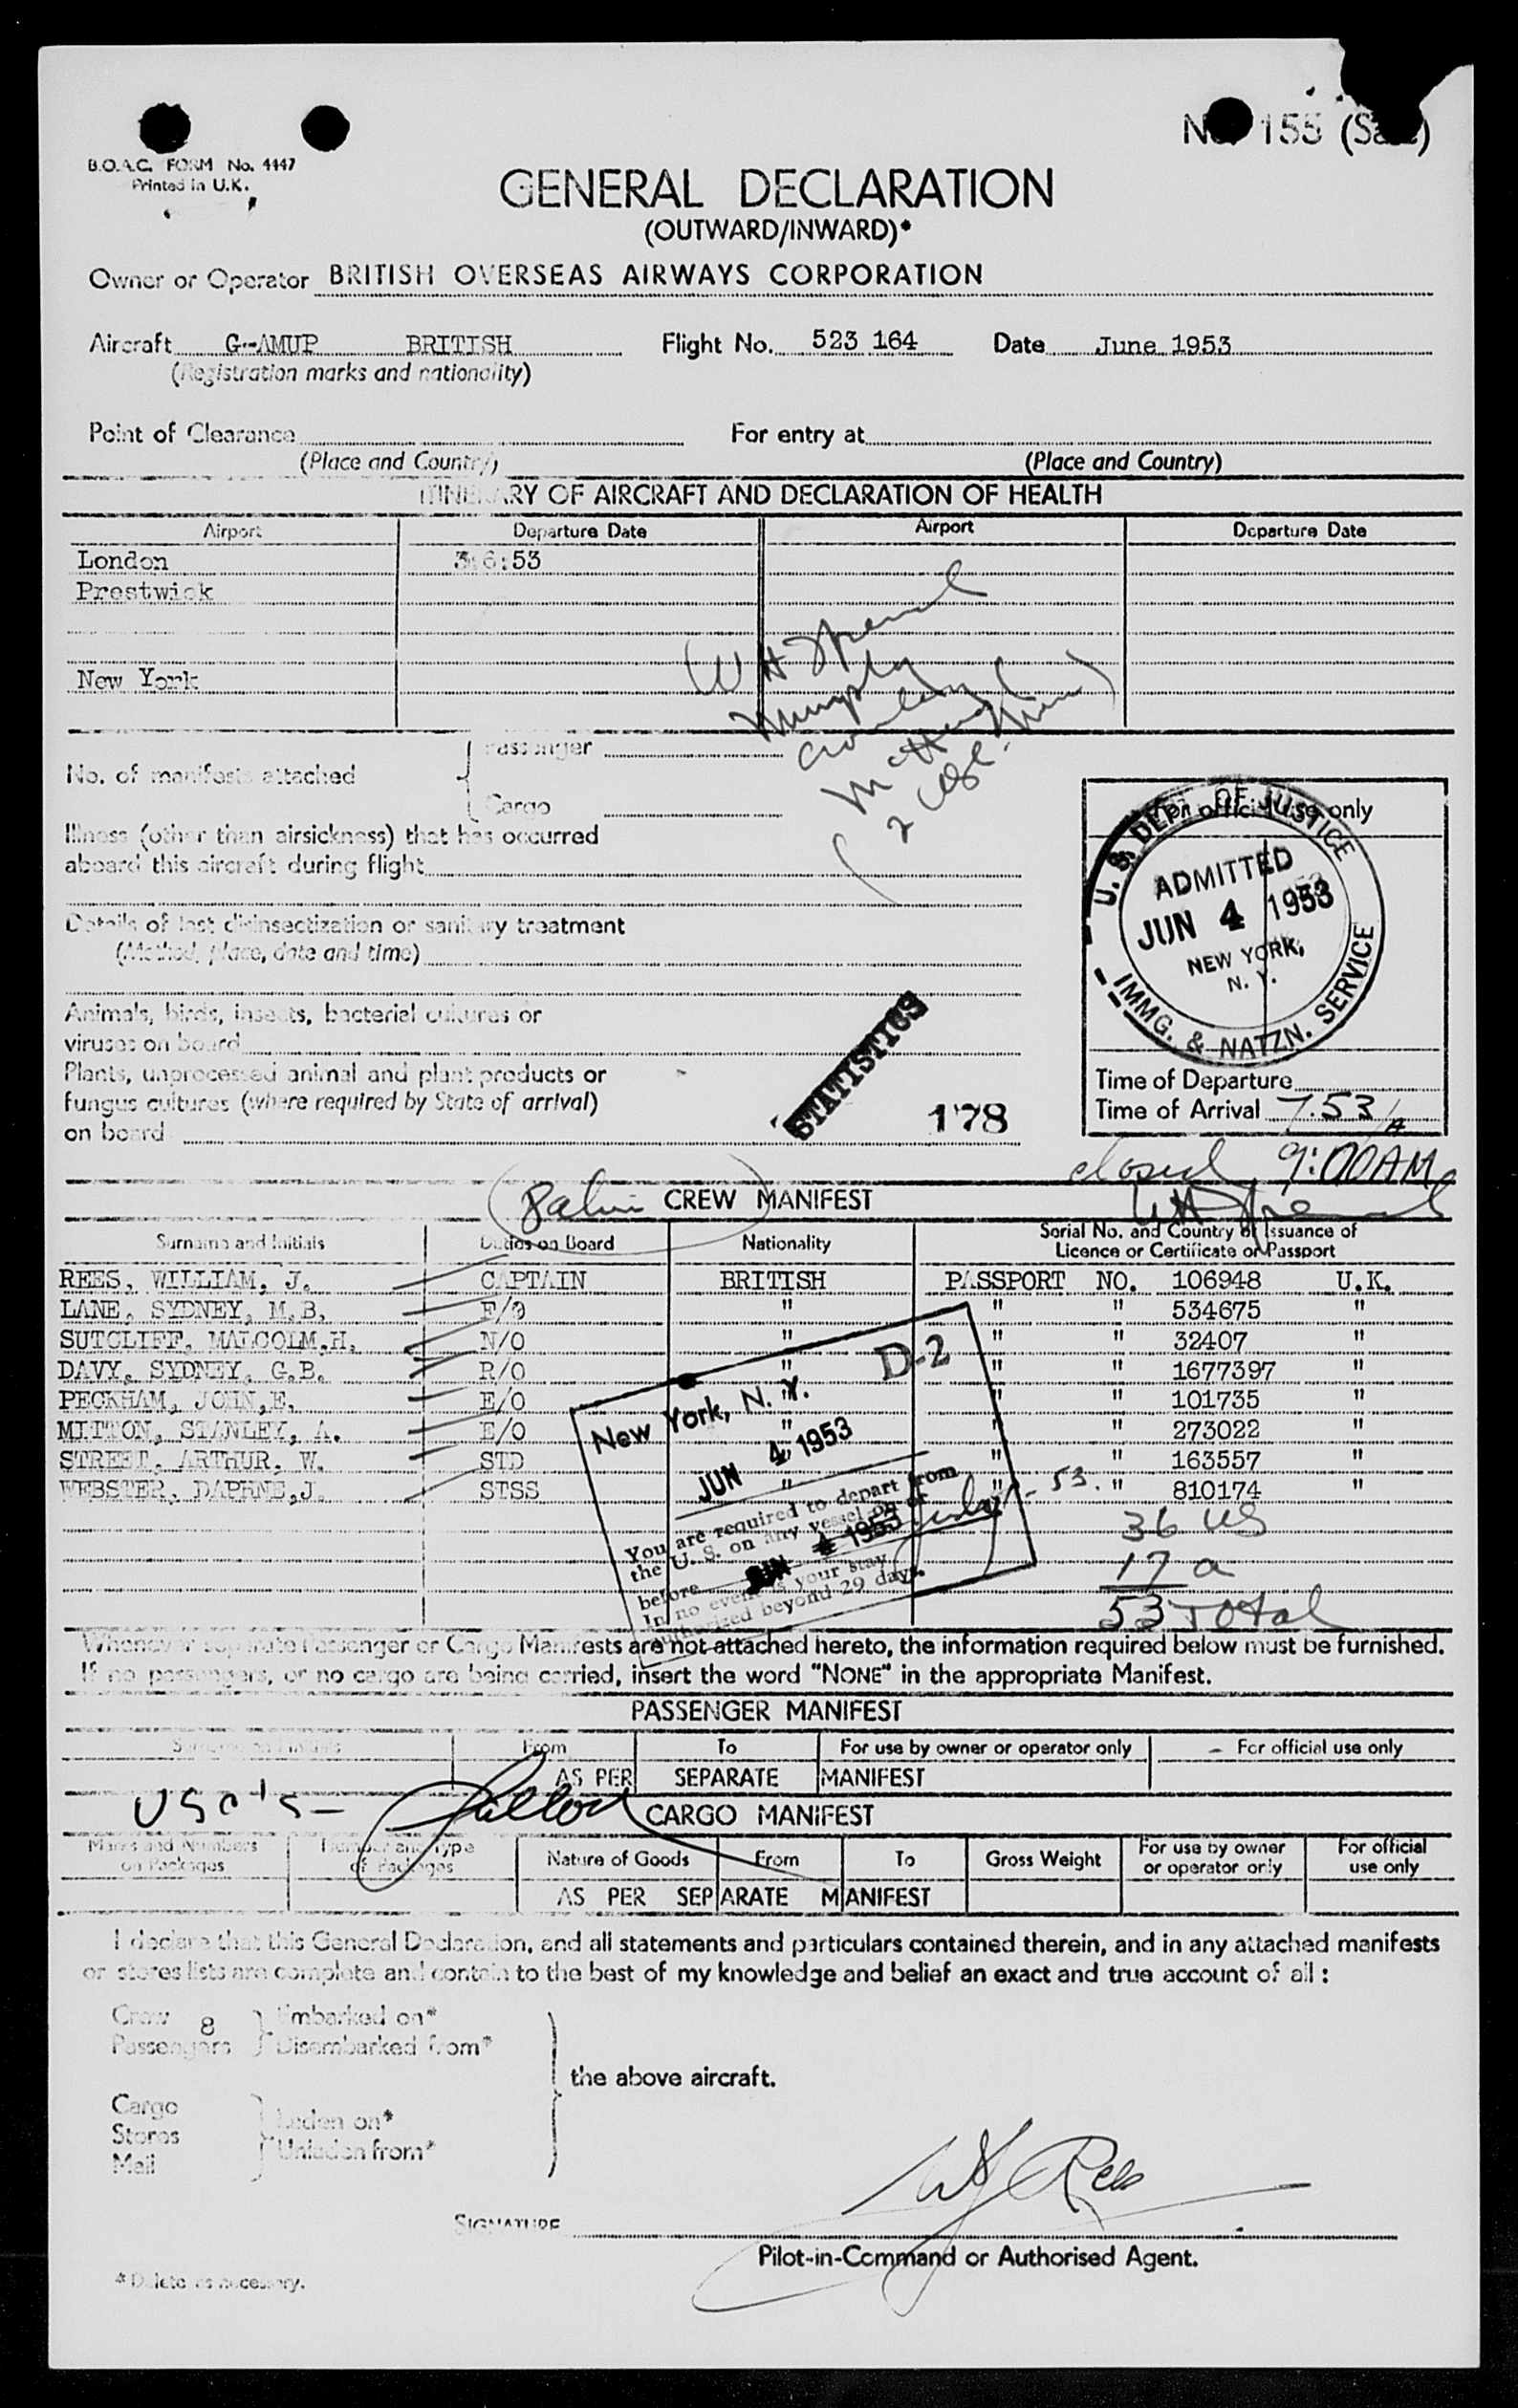 No. 155
B.O.A.C. FORM No. 4447
Printed in U.K.
GENERAL DECLARATION
(OUTWARD/INWARD)*
Owner or Operator BRITISH OVERSEAS AIRWAYS CORPORATION
Aircraft G-AMUP BRITISH Flight No. 523 164 Date June 1953
(Registration marks and nationality)
Point of Clearance For entry at
(Place and Country) (Place and Country)
ITINERARY OF AIRCRAFT AND DECLARATION OF HEALTH
Airport Departure Date Airport Departure Date
London 3:6:53
Prestwick
New York
Murphy
No. of manifests attached { Passenger
Cargo
For official use only
Illness (other than airsickness) that has occurred
aboard this aircraft during flight
Details of last disinsectization or sanitary treatment
(Method, place, date and time)
U. S. DEPT. OF JUSTICE
ADMITTED
JUN 4 1953
NEW YORK,
N. Y.
IMMG. & NATZN. SERVICE
Animals, birds, insects, bacterial cultures or
viruses on board
Plants, unprocessed animal and plant products or
fungus cultures (where required by State of arrival)
on board
STATISTICS
178
Time of Departure
Time of Arrival 7.53/A
closed 9:00AM
CREW MANIFEST
Surname and Initials Duties on Board Nationality Serial No. and Country of Issuance of
Licence or Certificate or Passport
REES, WILLIAM, J. CAPTAIN BRITISH PASSPORT NO. 106948 U.K.
LANE, SYDNEY, M.B. F/O " " " 534675 "
SUTCLIFF, MALCOLM.H. N/O " " " 32407 "
DAVY, SYDNEY, G.B. R/O " " " 1677397 "
PECKHAM, JOHN,E. E/O " " " 101735 "
MITTON, STANLEY, A. E/O " " " 273022 "
STREET, ARTHUR, W. STD " " 163557 "
WEBSTER, DAPHNE,J. STSS " " " 810174 "
D-2
New York, N. Y.
JUN 4 1953
You are required to depart from
the U. S. on any vessel on or
before JUN 4 1953
In no event is your stay
authorized beyond 29 days.
36 US
17 a
53 Total
Whenever separate Passenger or Cargo Manifests are not attached hereto, the information required below must be furnished.
If no passengers, or no cargo are being carried, insert the word "NONE" in the appropriate Manifest.
PASSENGER MANIFEST
Surname and Initials From To For use by owner or operator only For official use only
AS PER SEPARATE MANIFEST
USC's -
CARGO MANIFEST
Marks and Numbers
on Packages Number and Type
of Packages Nature of Goods From To Gross Weight For use by owner
or operator only For official
use only
AS PER SEPARATE MANIFEST
I declare that this General Declaration, and all statements and particulars contained therein, and in any attached manifests
or stores lists are complete and contain to the best of my knowledge and belief an exact and true account of all :
Crew 8 } Embarked on*
Passengers } Disembarked from*
the above aircraft.
Cargo
Stores } Laden on*
Mail } Unladen from*
WJ Rees
SIGNATURE
Pilot-in-Command or Authorised Agent.
* Delete as necessary.